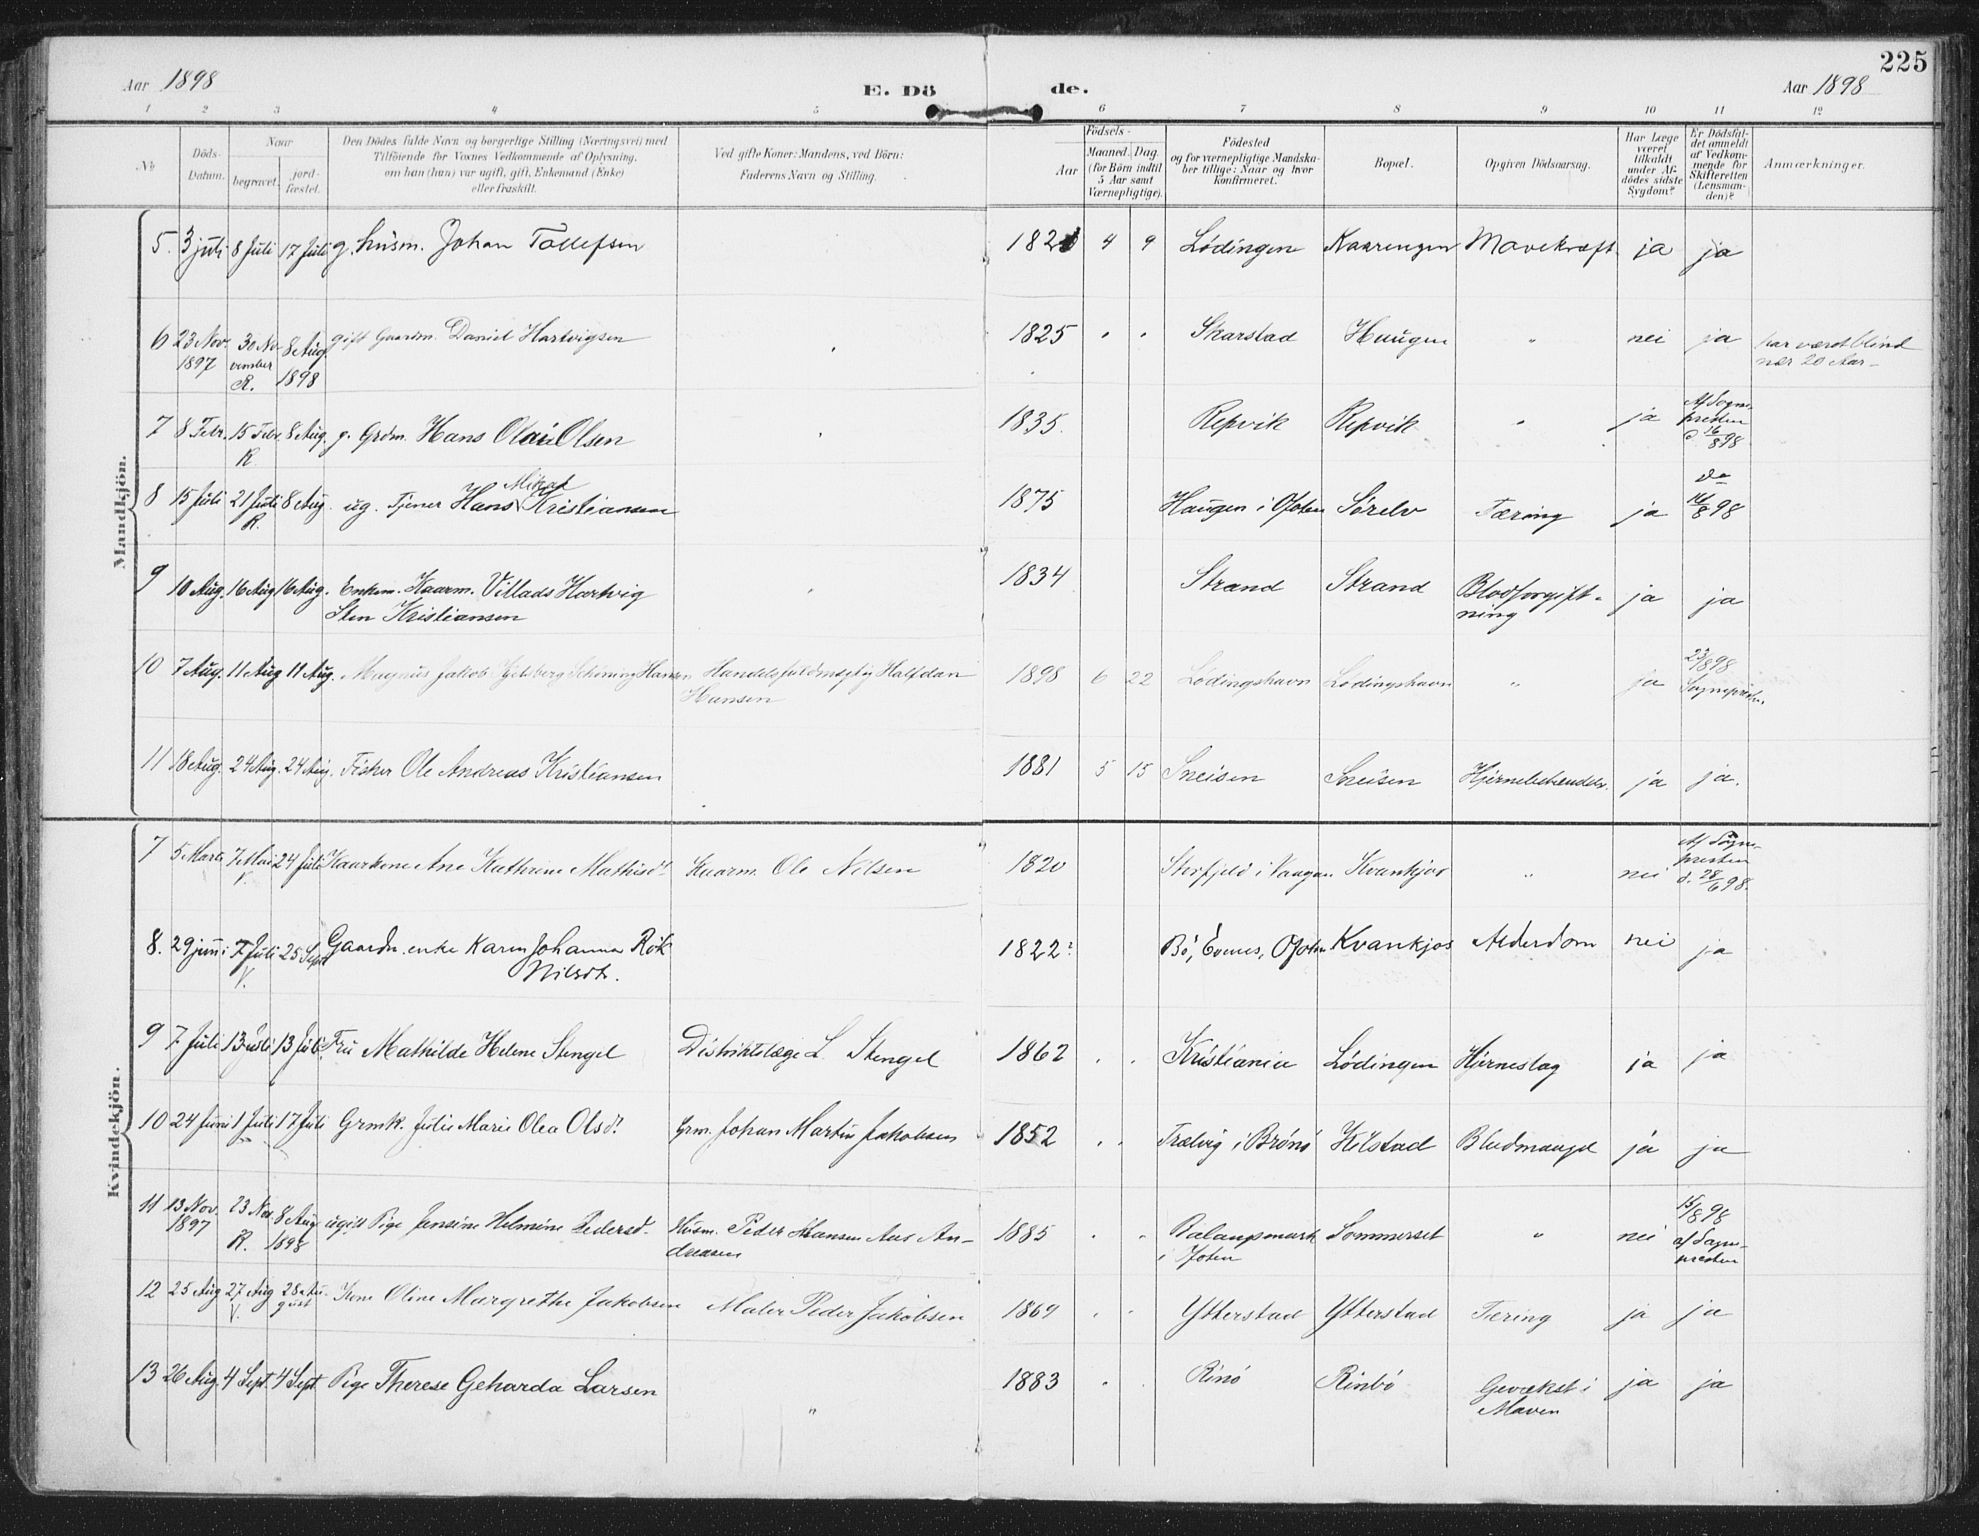 225
Aar 1898
E. Dö de.
Aar 1898
1 2 3 4 5 6 7 8 9 10 11 12
No
Döds-Datum.
Naar
begravet.
jord-fæstet.
Den Dödes fulde Navn og borgerlige Stilling (Næringsvei) med
Tilföiende for Voxnes Vedkommende af Oplysning,
om han (hun) var ugift, gift, Enkemand (Enke)
eller fraskilt.
Ved gifte Koner: Mandens, ved Börn:
Faderens Navn og Stilling.
Födsels-
Aar
Maaned. Dag.
(for Börn indtil
5 Aar samt
Værnepligtige).
Födested
og for værnepligtige Mandska-
ber tillige: Naar og hvor
Konfirmeret.
Bopæl.
Opgiven Dödsaarsag.
Har Læge
været
tilkaldt
under Af-
dödes sidste
Sygdom?
Er Dödsfal-
det anmeldt
af Vedkom-
mende for
Skifteretten
(Lensman-
den)?
Anmærkninger.
Mandkjön.
5. 3 juli 8 Juli 17 Juli g. husm. Johan Tollefsen 4 9 Lødingen Kaaringen Mavekræft ja ja
6 23 Nov. 1897 30 November R. 8 Aug 1898 gift Gaardm. Daniel Hartvigsen 1825 " " Skarstad Haugen " nei ja har været blind
nær 20 Aar
7 8 Febr. 15 Febr. R. 8 Aug. g. Grdm. Hans Olai Olsen 1835. Repvik Repvik " ja Af Sogne-
presten
d 16/8 98
8 15 Juli 21 Juli R. 8 Aug. ug. Tjener Hans Mikal Kristiansen 1875 Haugen i Ofoten Sørelv Tæring ja do
16/8 98
9 10 Aug. 16 Aug 16 Aug. Enkem. Kaarm. Villads Hartvig
Sten Kristiansen 1834 Strand Strand Blodforgift-
ning ja ja
10 7 Aug. 11 Aug 11 Aug. Magnus Jakob Gjelsberg Schöning Hansen Handelsfuldmægtig Halfdan
Hansen 1898 6 22 Lødingshavn Lødingshavn " ja 23/8 98
Sognepresten.
11 18 Aug. 24 Aug. 24 Aug. Fisker Ole Andreas Kristiansen 1881 5 15 Sneisen Sneisen Hjernebetændelse. ja ja.
Kvindekjön.
7 5 Marts 7 Mai V. 24 Juli Kaarkone Ane Kathrine Mathisdt Kaarm. Ole Nilsen 1820 Storfjeld i Vaagan Kvankjos " nei Af Sogne-
presten
d. 28/6 98.
8. 29 juni 7 Juli V. 25 Sept Gaardm. enke Karen Johanna Rök
Nilsdt. 1822? Bø, Evenes, Ofoten Kvankjos Alderdom nei ja
9 7 Juli 13 Juli 13 Juli Fru Mathilde Helene Stengel Distriktslæge L. Stengel 1862 " " Kristiania Lødingen Hjerneslag ja ja
10 24 Juni 1 Juli 17 Juli Grmk. Julie Marie Olea Olsdt. Grm. Johan Martin Jakobsen 1852 " " Trælvig i Brönö Kilstad Blodmangel ja ja
11 13 Nov. 1897 23 Nov R. 8 Aug 1898 ugift Pige Jensine Helmine Pedersd. Husm. Peder Hansen Aas An-
dreasen 1885 " " Balangsmark
i Ofoten Sommerset " nei 15/8 98
af Sogne-
presten
12 25 Aug 27 Aug V. 28 August Kone Oline Margrethe Jakobsen Maler Peder Jakobsen 1869 " " Ytterstad Ytterstad Tæring ja ja
13 26 Aug. 4 Sept. 4 Sept. Pige Therese Geharda Larsen " 1883 " " Rinö Rinbö Gevækst i
Maven ja ja